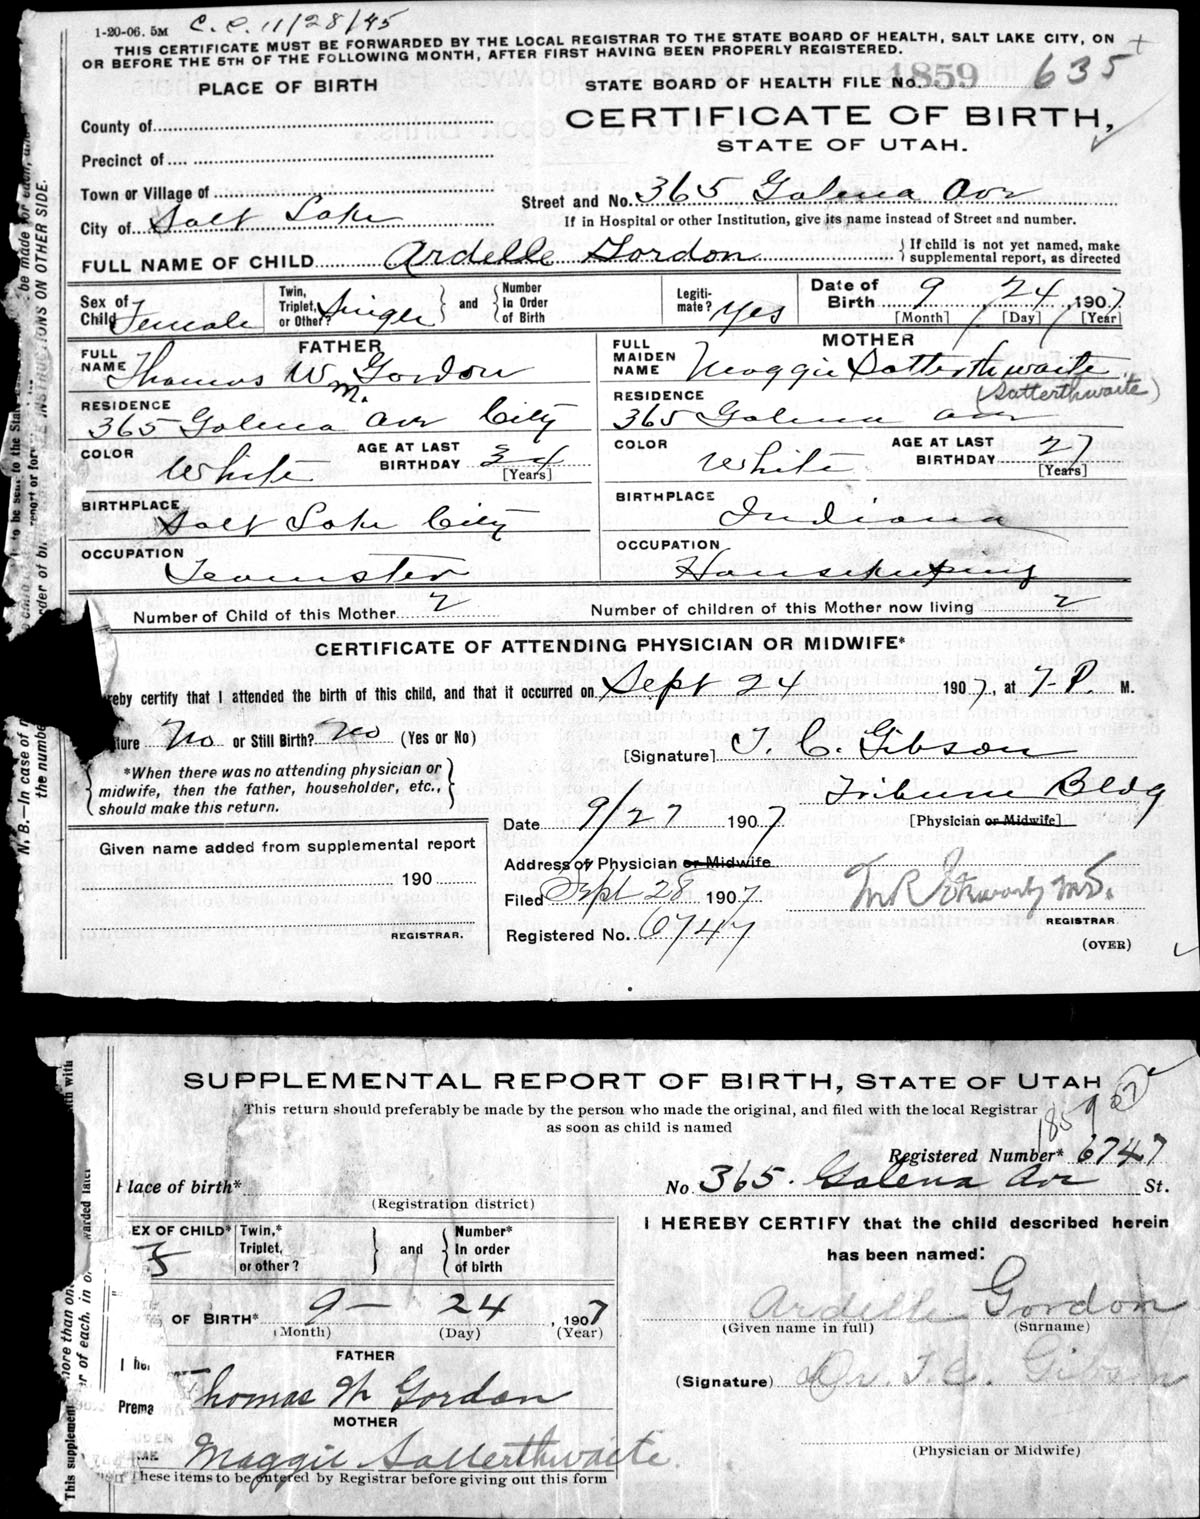 1-20-06. 5M C. C. 11/28/45
THIS CERTIFICATE MUST BE FORWARDED BY THE LOCAL REGISTRAR TO THE STATE BOARD OF HEALTH, SALT LAKE CITY, ON
OR BEFORE THE 5TH OF THE FOLLOWING MONTH, AFTER FIRST HAVING BEEN PROPERLY REGISTERED.
PLACE OF BIRTH
STATE BOARD OF HEALTH FILE No. 1859 635
CERTIFICATE OF BIRTH,
STATE OF UTAH.
County of
Precinct of
Town or Village of
City of Salt Lake
Street and No. 365 Galena Ave
If in Hospital or other Institution, give its name instead of Street and number.
FULL NAME OF CHILD Ardelle Gordon
If child is not yet named, make
supplemental report, as directed
Sex of Child Female
Twin, Triplet, or Other? Single
and
Number In Order of Birth
Legitimate? Yes
Date of Birth 9 / 24 / 1907
[Month] [Day] [Year]
FATHER
FULL NAME Thomas Wm. Gordon
RESIDENCE 365 Galena Ave City
COLOR White
AGE AT LAST BIRTHDAY 34 [Years]
BIRTHPLACE Salt Lake City
OCCUPATION Teamster
MOTHER
FULL MAIDEN NAME Maggie Satterthwaite
(Satterthwaite)
RESIDENCE 365 Galena Ave
COLOR White
AGE AT LAST BIRTHDAY 27 [Years]
BIRTHPLACE Indiana
OCCUPATION Housekeeping
Number of Child of this Mother 2
Number of children of this Mother now living 2
CERTIFICATE OF ATTENDING PHYSICIAN OR MIDWIFE*
reby certify that I attended the birth of this child, and that it occurred on Sept 24 1907, at 7- P. M.
ture No or Still Birth? No (Yes or No)
[Signature] T. C. Gibson
*When there was no attending physician or
midwife, then the father, householder, etc.,
should make this return.
Tribune Bldg
[Physician or Midwife]
Date 9/27 1907
Given name added from supplemental report
190
REGISTRAR.
Address of Physician or Midwife
Filed Sept 28 1907
M.D.
REGISTRAR
Registered No. 6747
(OVER)
SUPPLEMENTAL REPORT OF BIRTH, STATE OF UTAH
This return should preferably be made by the person who made the original, and filed with the local Registrar
as soon as child is named
1859 07
Registered Number* 6747
Place of birth*
(Registration district)
No. 365. Galena Ave St.
EX OF CHILD* F
Twin,* Triplet, or other?
and
Number* In order of birth
I HEREBY CERTIFY that the child described herein
has been named:
OF BIRTH* 9 - 24, 1907
(Month) (Day) (Year)
Ardelle Gordon
(Given name in full) (Surname)
FATHER
homas W Gordon
(Signature) Dr. T. C. Gibson
MOTHER
Maggie Satterthwaite.
(Physician or Midwife)
These items to be entered by Registrar before giving out this form